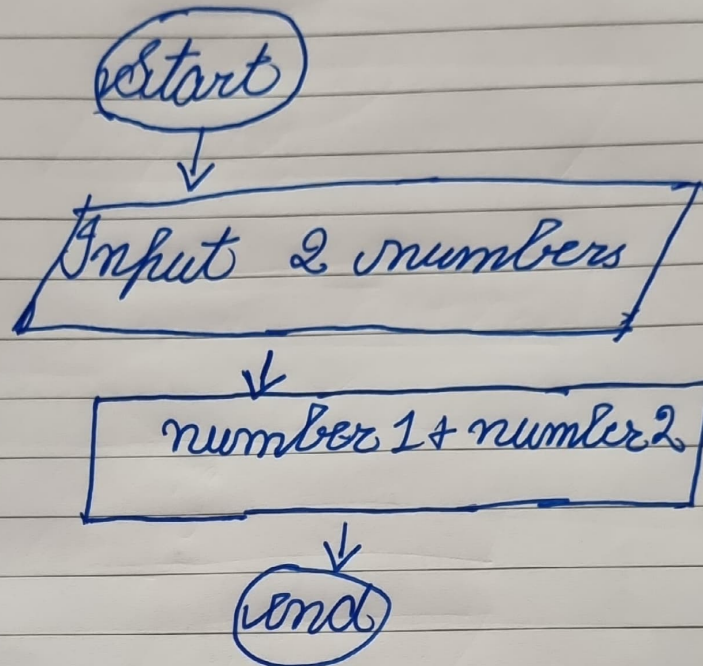 Start
Input 2 numbers
number1+number2
end